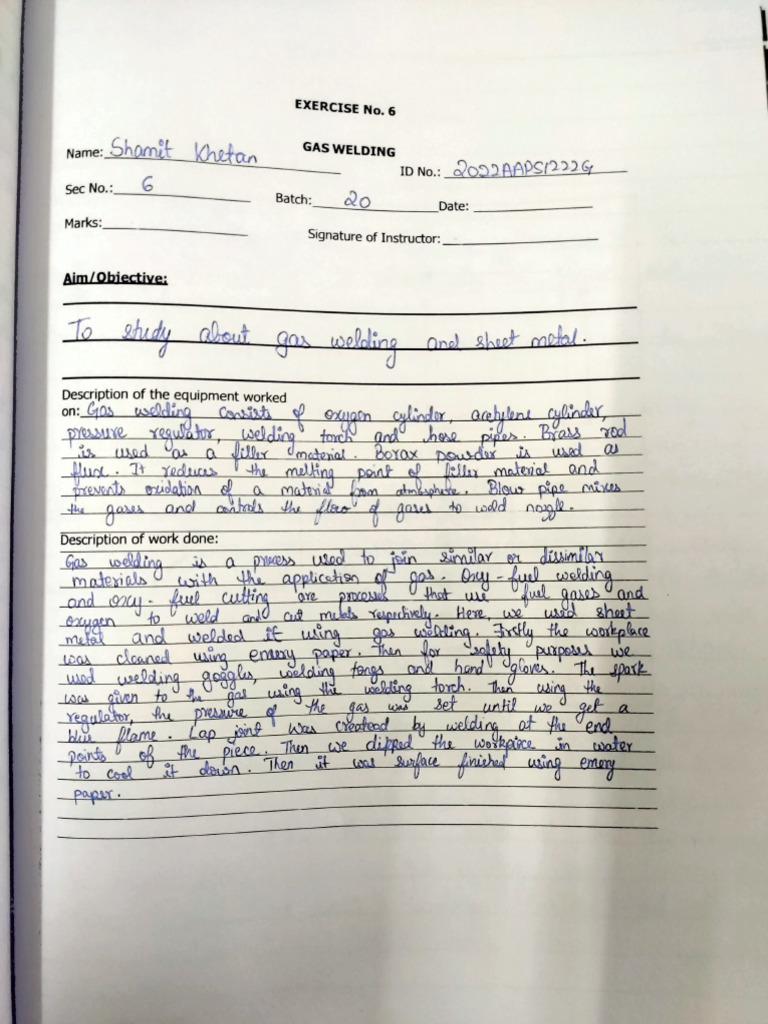 EXERCISE No. 6
GAS WELDING
Name: Shamit Khetan
ID No.: 2022AAPS1222G
Sec No.: 6
Batch: 20
Date:
Marks:
Signature of Instructor:
Aim/Objective:
To study about gas welding and sheet metal.
Description of the equipment worked
on: Gas welding consists of oxygen cylinder, acetylene cylinder,
pressure regulator, welding torch and hose pipes. Brass rod
is used as a filler material. Borax powder is used as
flux. It reduces the melting point of filler material and
prevents oxidation of a material from atmosphere. Blow pipe mixes
the gases and controls the flow of gases to weld nozzle.
Description of work done:
Gas welding is a process used to join similar or dissimilar
materials with the application of gas. Oxy-fuel welding
and oxy-fuel cutting are processes that use fuel gases and
oxygen to weld and cut metals respectively. Here, we used sheet
metal and welded it using gas welding. Firstly the workplace
was cleaned using emery paper. Then for safety purposes we
used welding goggles, welding tongs and hand gloves. The spark
was given to the gas using the welding torch. Then using the
regulator, the pressure of the gas was set until we get a
blue flame. Lap joint was createad by welding at the end
points of the piece. Then we dipped the workpiece in water
to cool it down. Then it was surface finished using emery
paper.